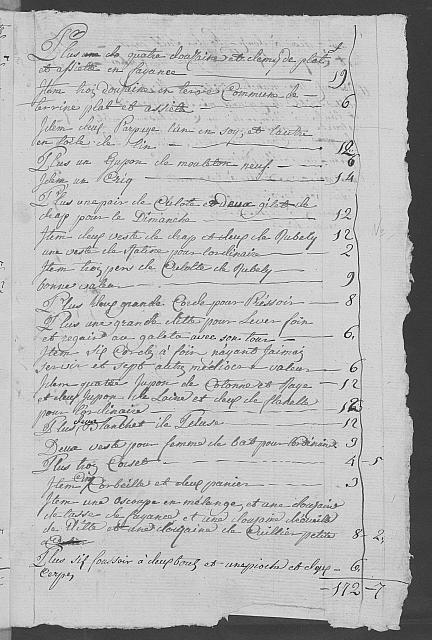 Plus quatre douzaine et demy de plat
et assiette en fayance — 19
Item troi douzaine en terre Commune de
terrine plat et assiete — 6
Idem deuf l'un en soy et l'autre
en toile de — 12
Plus un Jupon de moulton neuf — 6
Idem un — 14
Plus une pair de Culote et deux gilet de
drap pour le Dimanche — 12
Item deux veste de drap et deux de Rubely 12
une veste de Ratine pour lordinaire — 2
Item troi pers de Culotte de Rubely
bonnes valeur — 9
Plus deux grande Corde pour Pressoir — 8
Plus une grande pour Lever foin
et regain au galeta avec son tour — 6
Item six Cordes à foin nayant Jamai
servir et sept autre médiocre valeur — 6
Idem quatre Jupon de Cotonne et Raye — 12
et deux Jupon de Laine et deux de flanelle
pour l'ordinaire — 12
Plus deux de — 12
Deux veste pour femme de bat pour lordinaire 3
Plus troi Corset — 4 - 5
Item Cinq Corbeille et deux panier — 3
Item une en mélange et une douzaine
de tasse de fayance et une douzaine
de et une douzaine de Cuillier petite
8 - 2
Plus six foussoir à deux bout et une pioche et deux
Cerpe — 6
172 - 7